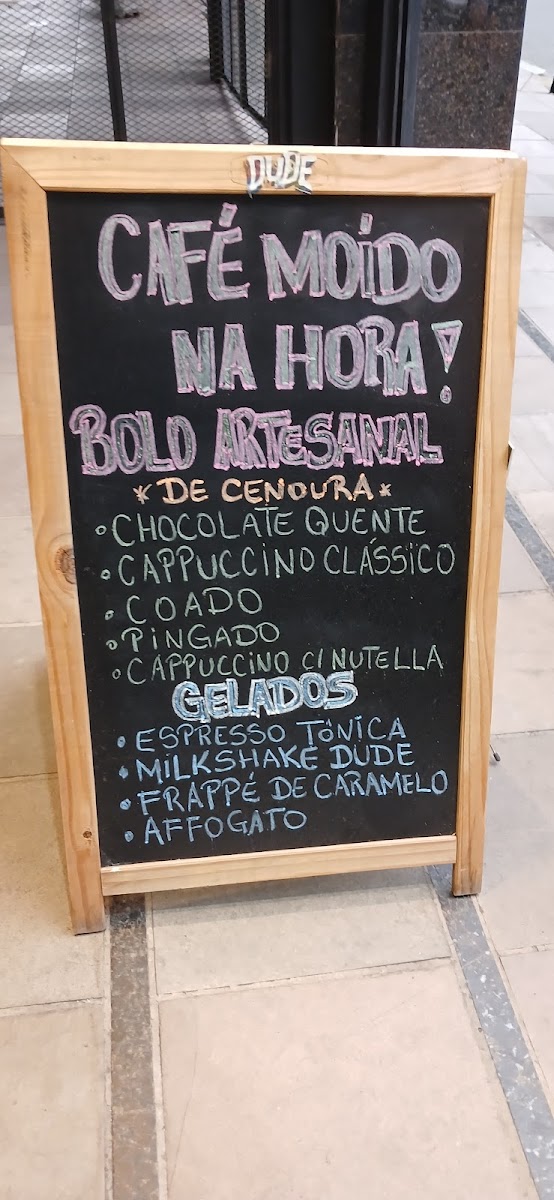 DUDE
CAFÉ MOÍDO
NA HORA!
BOLO ARTESANAL
*DE CENOURA*
• CHOCOLATE QUENTE
• CAPPUCCINO CLÁSSICO
• COADO
• PINGADO
• CAPPUCCINO C/ NUTELLA
GELADOS
• ESPRESSO TÔNICA
• MILKSHAKE DUDE
• FRAPPÉ DE CARAMELO
• AFFOGATO